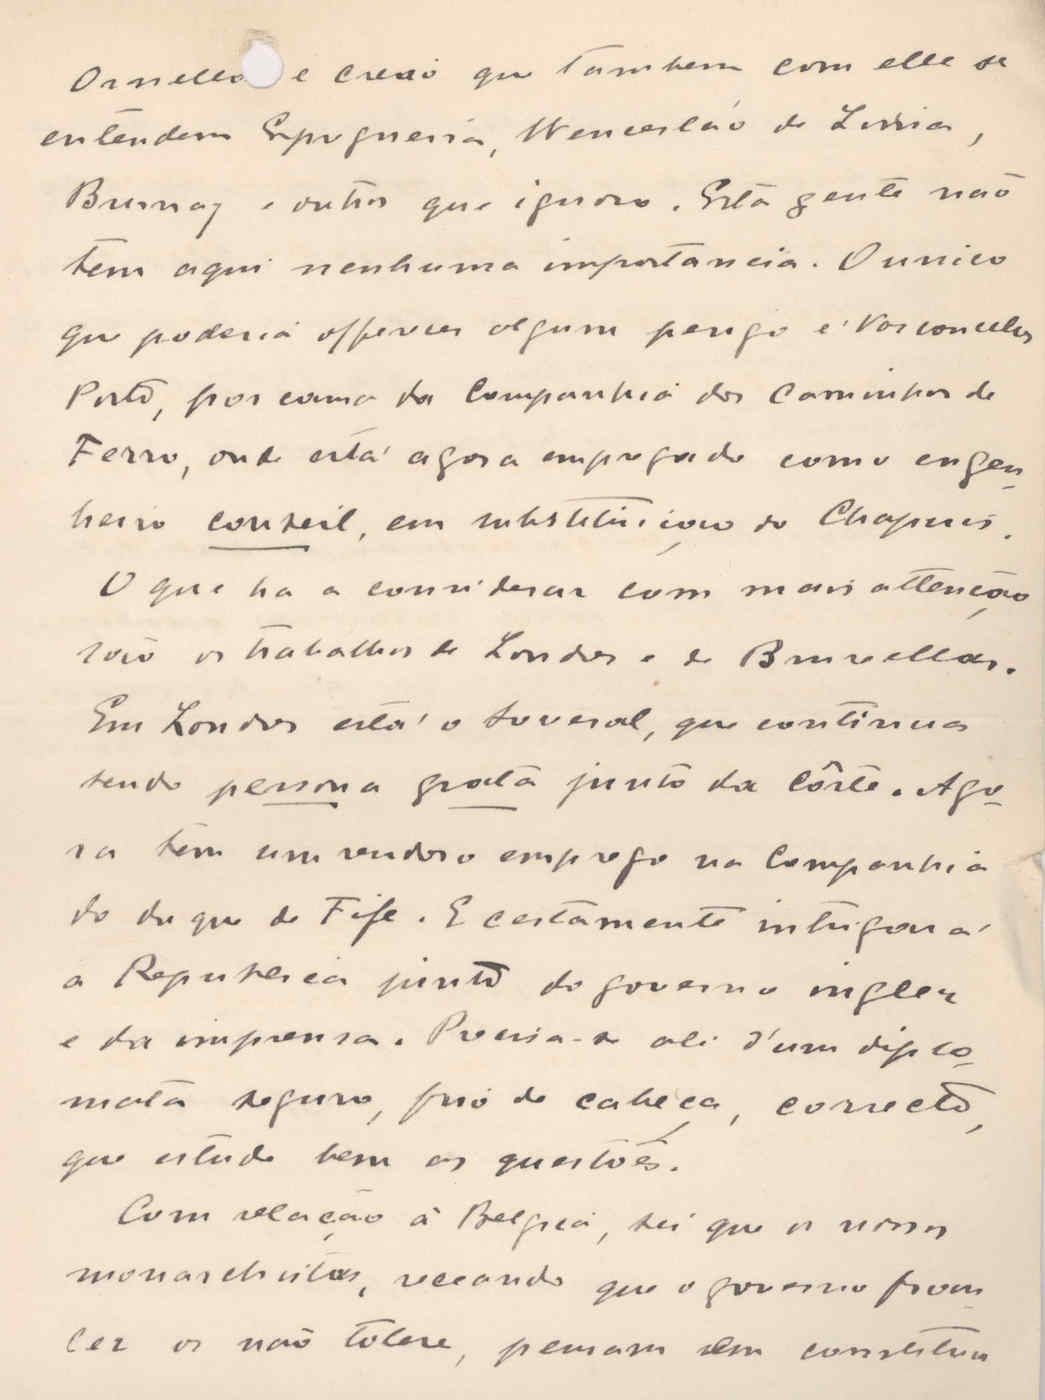 Ornellas e creio que tambem com elle se
entendem Espregueira, Wencesláo de Lima,
Burnay e outros que ignoro. Esta gente não
tem aqui nenhuma importancia. O unico
que poderia offerecer algum perigo é Vasconcellos
Porto, por causa da Companhia dos Caminhos de
Ferro, onde está agora empregado como engen-
heiro conseil, em substituição do Chapuis.
O que ha a considerar com mais attenção
são os trabalhos de Londres e de Bruxellas.
Em Londres está o Soveral, que continua
sendo persona grata junto da Côrte. Ago-
ra tem um rendoso emprego na Companhia
do duque de Fife. E certamente intrigará
a Republica junto do governo inglez
e da imprensa. Precisa-se ali d'um diplo-
mata seguro, frio de cabeça, correcto,
que estude bem as questões.
Com relação á Belgica, sei que os nossos
monarchistas, receando que o governo fran-
cez os não tolere, pensam em constituir